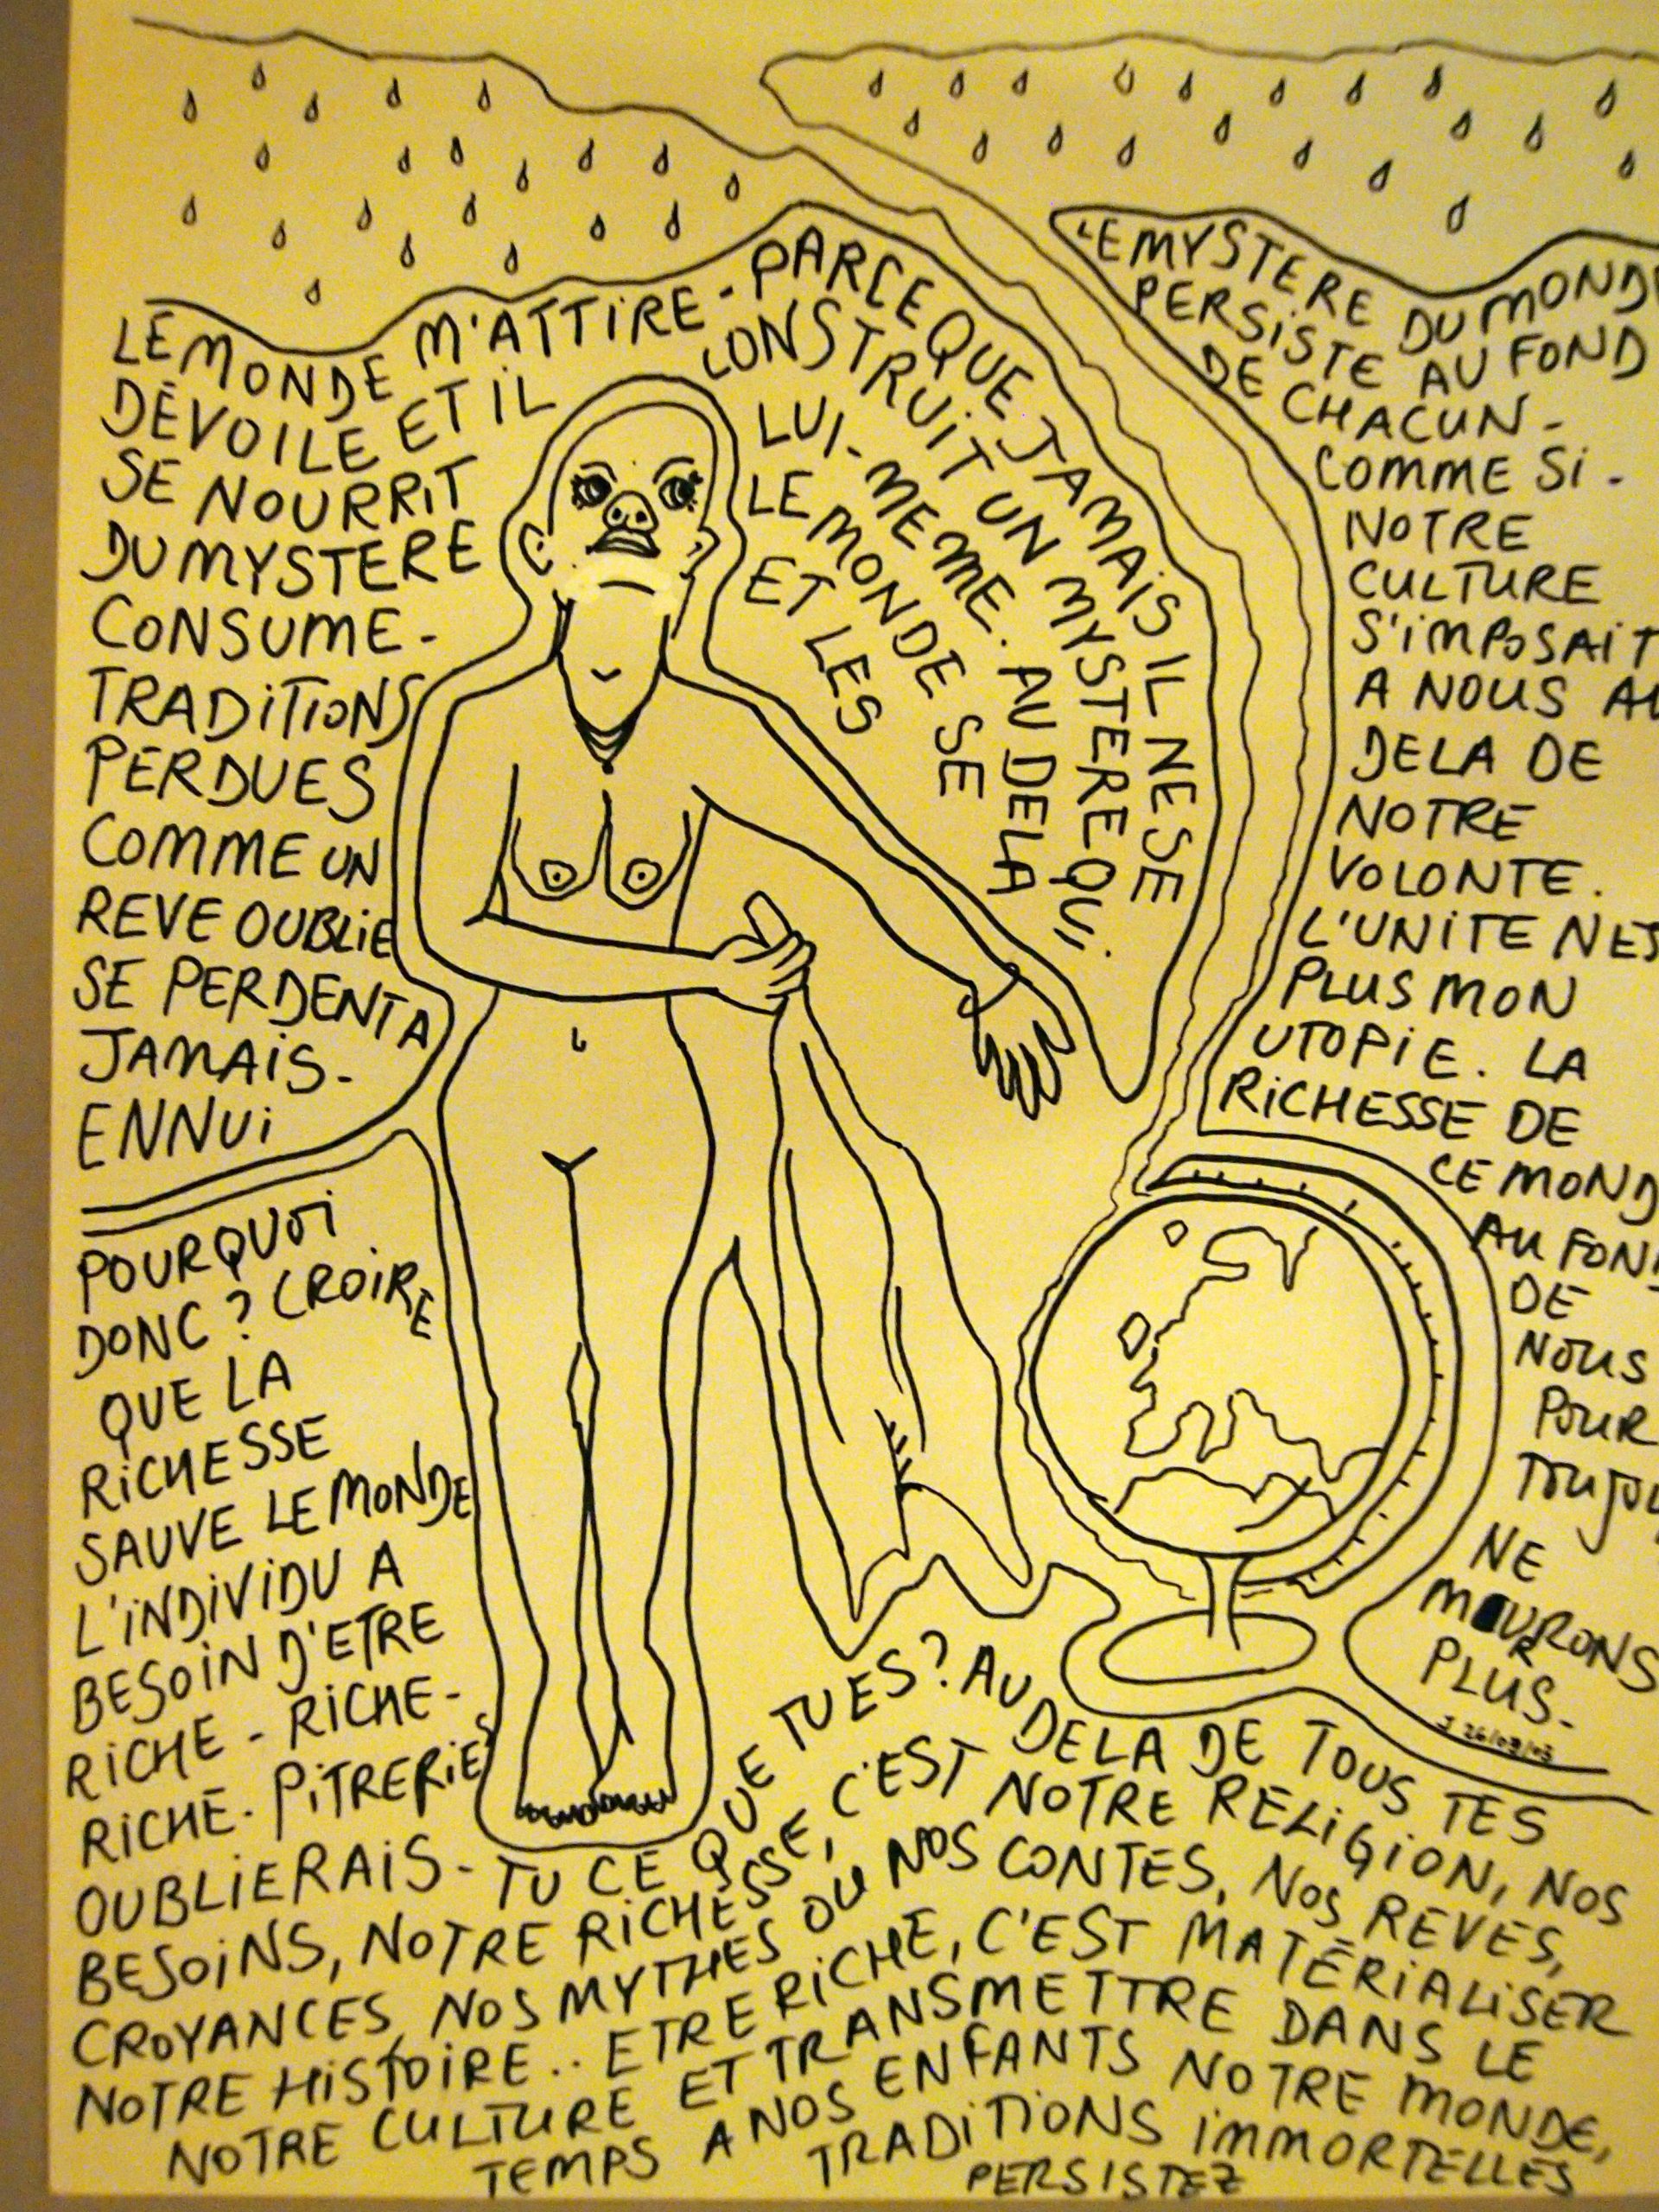 LE MONDE M'ATTIRE - PARCEQUE JAMAIS IL NE SE
DÉVOILE ET IL CONSTRUIT UN MYSTERE QUI.
SE NOURRIT LUI-MEME. AU DELA
DU MYSTERE LE MONDE SE
CONSUME - ET LES
TRADITIONS
PERDUES
COMME UN
REVE OUBLIE
SE PERDENT A
JAMAIS -
ENNUI
LE MYSTERE DU MONDE
PERSISTE AU FOND
DE CHACUN -
COMME SI -
NOTRE
CULTURE
S'IMPOSAIT
A NOUS AU
DELA DE
NOTRE
VOLONTE.
L'UNITE NES
PLUS MON
UTOPIE. LA
RICHESSE DE
CE MOND
AU FOND
DE
NOUS
POUR
TOUJOU
NE
MOURONS
PLUS -
J 26/03/03
POURQUOI
DONC? CROIRE
QUE LA
RICHESSE
SAUVE LE MONDE
L'INDIVIDU A
BESOIN D'ETRE
RICHE - RICHE -
RICHE. PITRERIES
OUBLIERAIS - TU CE QUE TU ES? AU DELA DE TOUS TES
BESOINS, NOTRE RICHESSE, C'EST NOTRE RELIGION, NOS
CROYANCES, NOS MYTHES OU NOS CONTES, NOS REVES,
NOTRE HISTOIRE.. ETRE RICHE, C'EST MATÉRIALISER
NOTRE CULTURE ET TRANSMETTRE DANS LE
TEMPS A NOS ENFANTS NOTRE MONDE,
TRADITIONS IMMORTELLES
PERSISTEZ